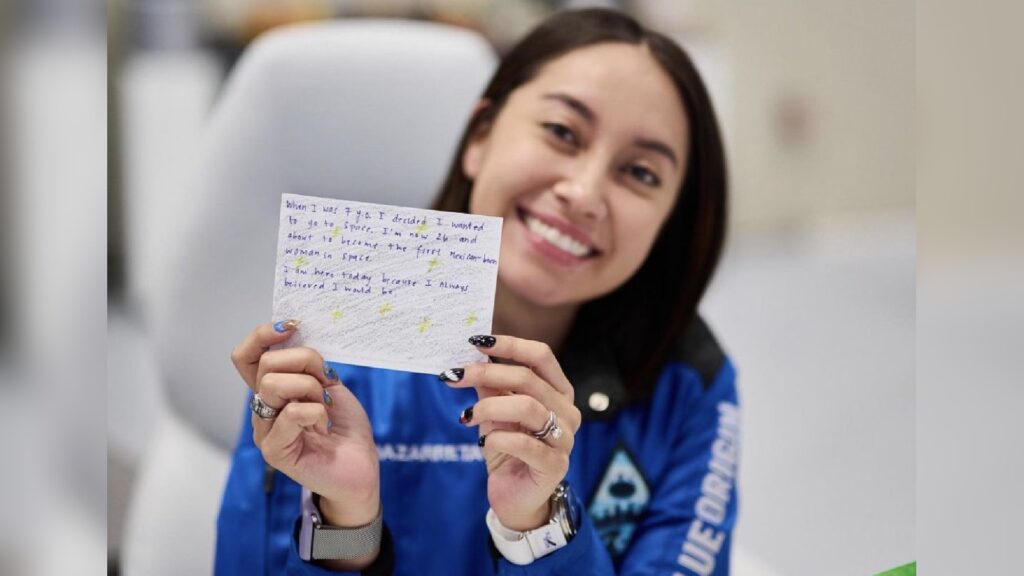 When I was 7 y.o. I decided I wanted
to go to space. I'm now 26 and
about to become the first Mexican-born
woman in space.
I am here today because I ALWAYS
believed I would be.
AZARRETA
BLUE ORIGIN